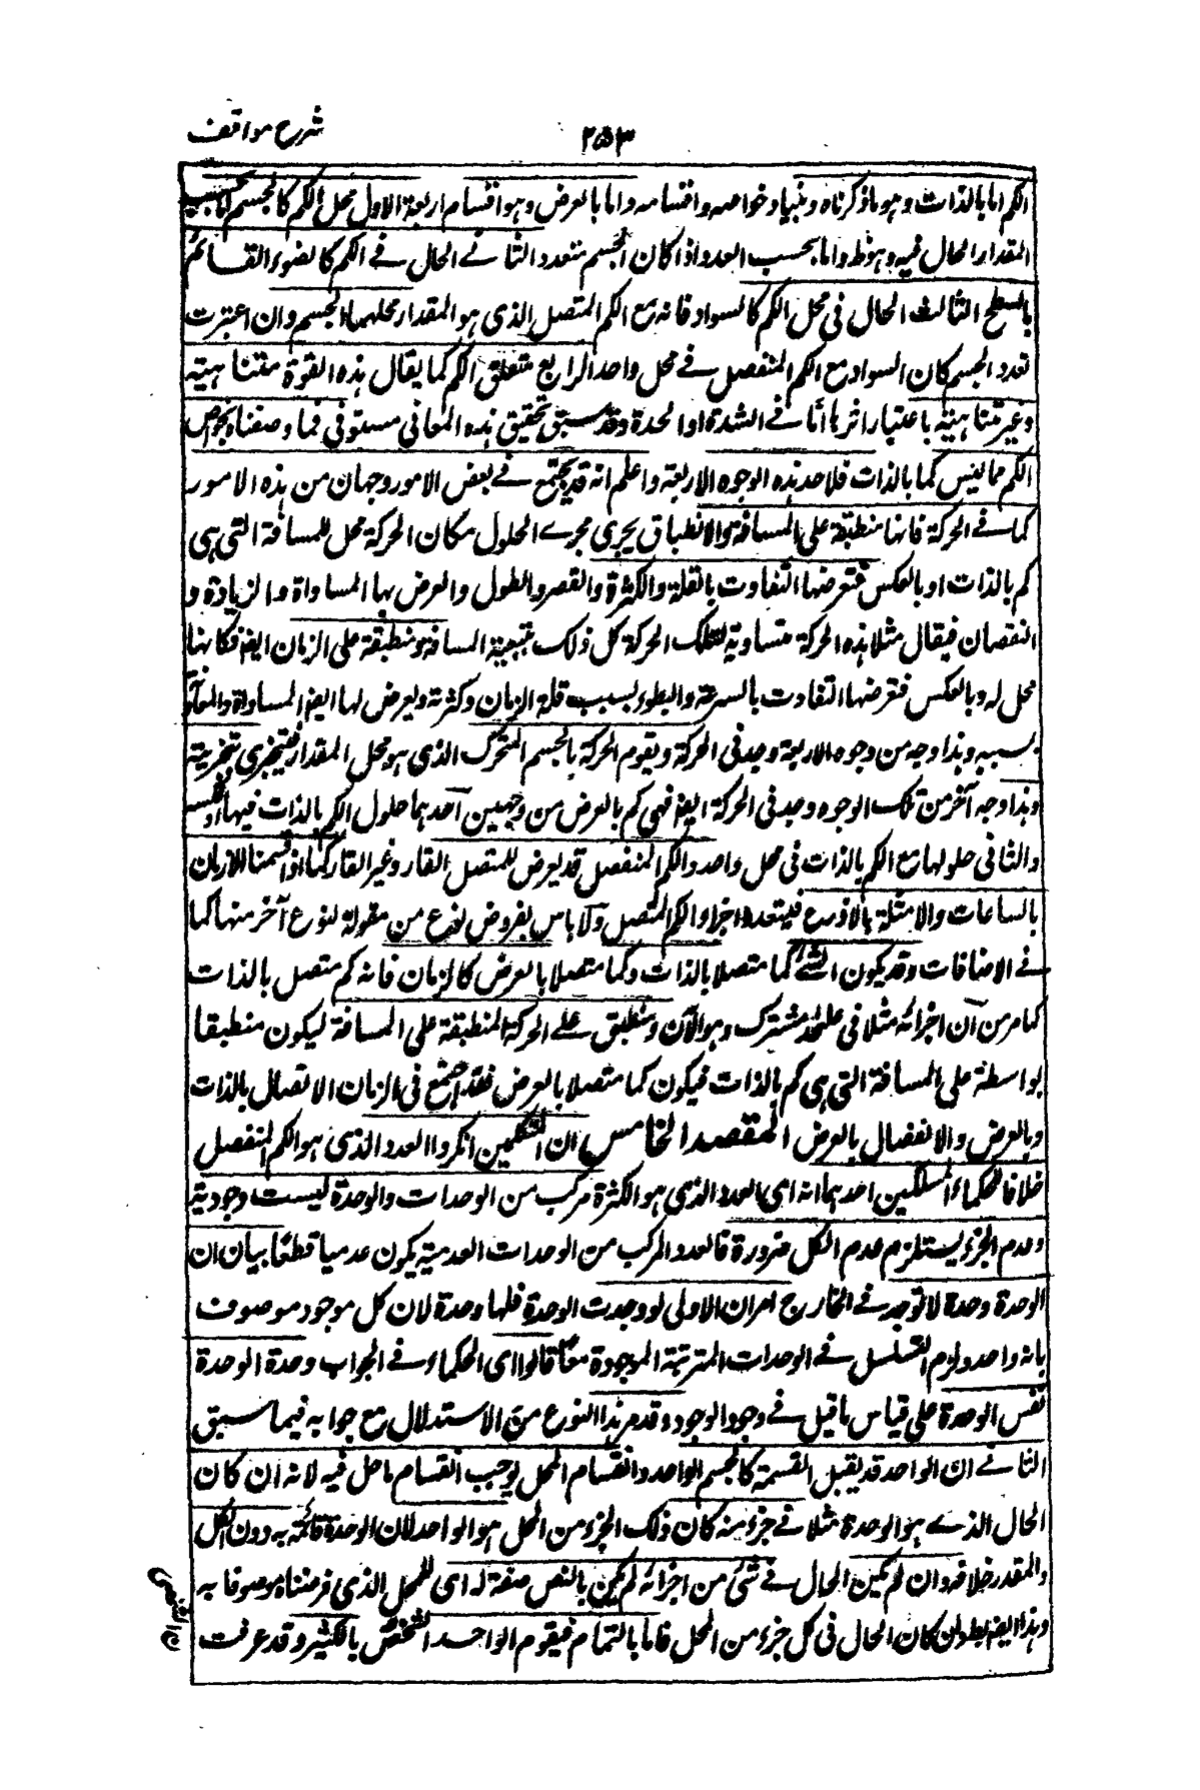 شرح مواقف
٢٥٣
الكم اما بالذات وهو ما ذكرناه وبينا وخواصه واقسامه واما بالعرض وهو اقسام اربعة الاول محل الكم كالجسم اما بحسب
المقدار الحال فيه وهو ظ واما بحسب العدد اذا كان الجسم متعدد الثانى الحال فى الكم كالضوء القائم
بالسطح الثالث الحال فى محل الكم كالسواد فانه مع الكم المتصل الذى هو المقدار محلهما الجسم وان اعتبرت
تعدد الجسم كان السواد مع الكم المنفصل فى محل واحد الرابع متعلق الكم كما يقال هذه القوة متناهية
وغير متناهية باعتبار اثرها اما فى الشدة او المدة وقد سبق تحقيق هذه المعانى مستوفى فما وصفناه بخواص
الكم مما ليس كما بالذات فلاحد هذه الوجوه الاربعة واعلم انه قد يجتمع فى بعض الامور وجهان من هذه الامور
كما فى الحركة فانها منطبقة على المسافة والانطباق يجرى مجرى الحلول فكان الحركة محل للمسافة التى هى
كم بالذات او بالعكس فتعرضها التفاوت بالقلة والكثرة والقصر والطول والعرض بها المساواة والزيادة و
النقصان فيقال مثلا هذه الحركة متساوية لتلك الحركة كل ذلك بتبعية المسافة ومنطبقة على الزمان ايضا فكانها
محل له وبالعكس فتعرضها التفاوت بالسرعة والبطوء بسبب قلة الزمان وكثرته ويعرض لها ايضا المساواة والمفاوتة
بسببه وهذا وجه من وجوه الاربعة وجد فى الحركة ويقوم الحركة بالجسم المتحرك الذى هو محل المقدار فيتجزى بتجزيته
وهذا وجه آخر من تلك الوجوه وجد فى الحركة ايضا فهى كم بالعرض من وجهين احدهما حلول الكم بالذات فيها او عكسه
والثانى حلولها مع الكم بالذات فى محل واحد والكم المنفصل قد يعرض للمتصل القار وغير القار كما اذا قسمنا الازمان
بالساعات والامثلة بالاذرع فيتعدد اجزاء الكم المتصل ولا باس بعروض نوع من مقولة لنوع آخر منها كما
فى الاضافات وقد يكون الشئ كما متصلا بالذات وكما متصلا بالعرض كالزمان فانه كم متصل بالذات
كما مر من ان اجزائه مثلا فى على حد مشترك وهو الآن ومنطبق على الحركة المنطبقة على المسافة ليكون منطبقا
بواسطة على المسافة التى هى كم بالذات فيكون كما متصلا بالعرض فقد اجتمع فى الزمان الاتصال بالذات
وبالعرض والانفصال بالعرض المقصد الخامس ان المتكلمين انكروا العدد الذى هو الكم المنفصل
خلافا للحكماء لمسلكين احدهما انه اى العدد الذى هو الكثرة مركب من الوحدات والوحدة ليست وجودية
وعدم الجزء يستلزم عدم الكل ضرورة فالعدد المركب من الوحدات العدمية يكون عدميا قطعا بيان ان
الوحدة وحدة لا توجد فى الخارج امران الاولى لو وجدت الوحدة فلها وحدة لان كل موجود موصوف
بانه واحد ولزم التسلسل فى الوحدات المترتبة الموجودة معا قالوا اى الحكماء فى الجواب وحدة الوحدة
نفس الوحدة على قياس ما قيل فى وجود الوجود وقد مر هذا النوع من الاستدلال مع جوابه فيما سبق
الثانى ان الواحد قد يقبل القسمة كالجسم الواحد وانقسام المحل يوجب انقسام ما حل فيه لانه ان كان
الحال الذى هو الوحدة مثلا فى جزء منه كان ذلك الجزء من المحل هو الواحد لان الوحدة قائمة به دون الكل
والمقدر خلافه وان لم يكن الحال فى شئ من اجزائه لم يكن بالنص صفة له اى للمحل الذى فرضناه موصوفا به
وهذا ايضا بط وان كان الحال فى كل جزء من المحل فاما بالتمام فيقوم الواحد الشخص بالكثير وقد عرفت